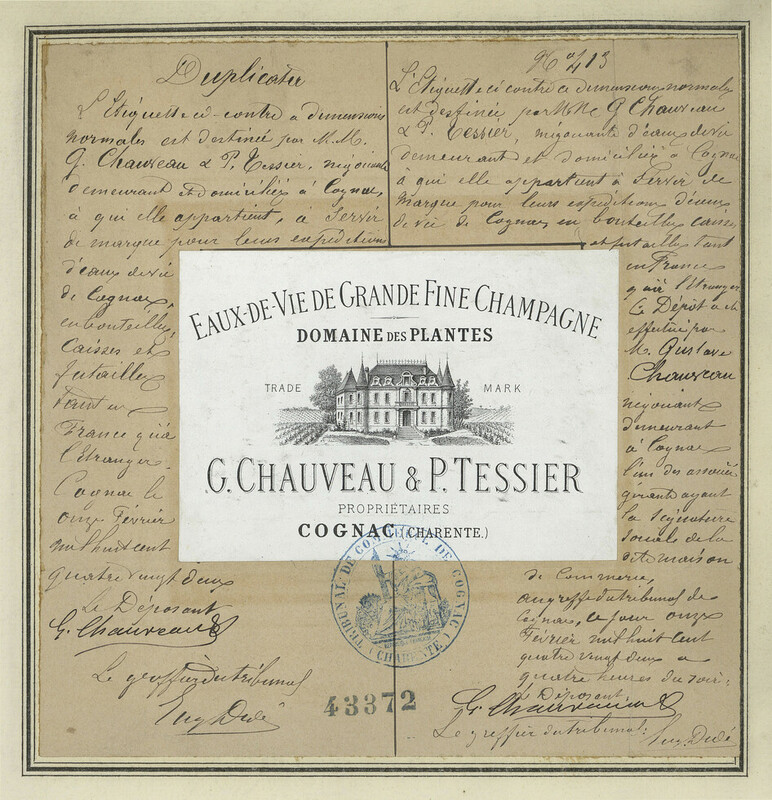 Duplicata
L'Etiquette ci-contre a dimensions
normales est destinée par M.M.
G. Chauveau & P. Tessier, négociants
demeurant et domiciliés à Cognac,
à qui elle appartient, à servir
de marque pour leurs expéditions
d'eaux de vie
de Cognac,
en bouteilles,
Caisses et
futailles
tant en
France qu'à
l'Etranger.
Cognac le
onze Février
mil huit cent
quatre vingt deux
Le Déposant
G. Chauveau
Le greffier du tribunal
Eug. Didé
No 413
L'Etiquette ci contre a dimensions normales
est destinée, par MM G Chauveau
& P. Tessier, négociants d'eaux de vie
demeurant et domiciliés à Cognac
à qui elle appartient à servir de
marque pour leurs expéditions d'eaux
de vie de Cognac en bouteilles caisses
et futailles tant
en France
qu'à l'Etranger
Ce Dépôt a été
effectué par
M. Gustave
Chauveau
négociant
demeurant
à Cognac
l'un des associés
gérants ayant
la signature
sociale de la
dite maison
de Commerce,
au greffe du tribunal de
Cognac, ce jour onze
Février mil huit cent
quatre vingt deux a
quatre heures du soir.
Le Déposant
G. Chauveau
Le greffier du tribunal:
Eug. Didé
EAUX-DE-VIE DE GRANDE FINE CHAMPAGNE
DOMAINE DES PLANTES
TRADE MARK
G. CHAUVEAU & P. TESSIER
PROPRIÉTAIRES
COGNAC (CHARENTE.)
TRIBUNAL DE COMMERCE DE COGNAC
(CHARENTE)
43372